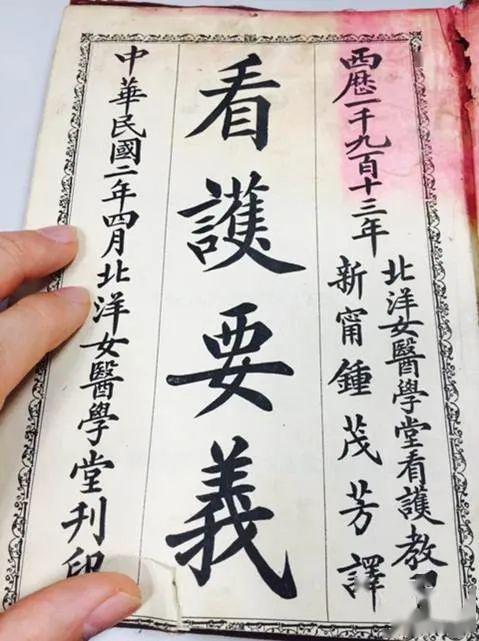 西歷一千九百十三年
北洋女醫學堂看護教
新甯鍾茂芳譯
看護要義
中華民國二年四月北洋女醫學堂刊印